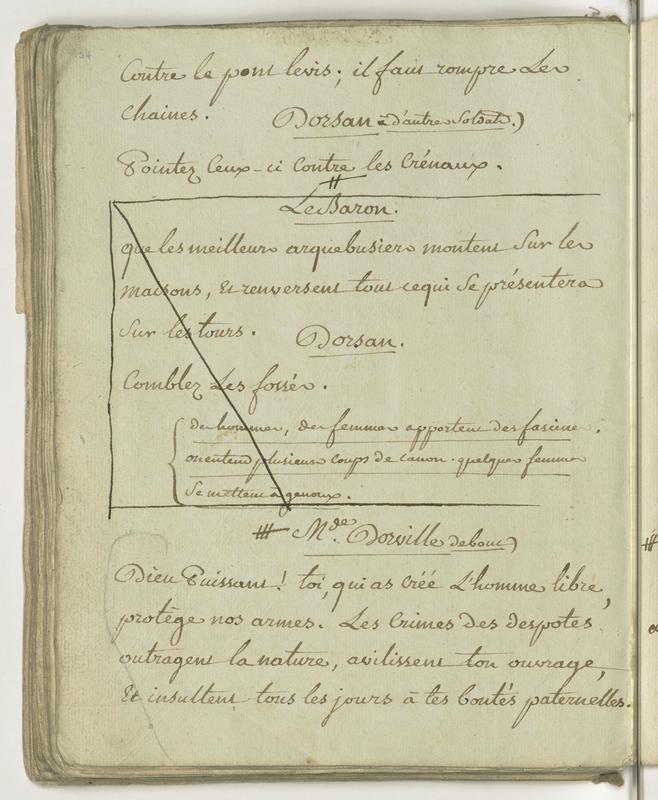 34
Contre le pont levis; il faut rompre les
Chaines.
Dorsan à d'autres Soldats.)
Pointez Ceux-ci Contre les Crénaux.
Le Baron.
que les meilleurs arquebusiers montent Sur les
maisons, Et renversent tout ce qui Se présentera
Sur les tours.
Dorsan.
Comblez Les fossés.
des hommes, des femmes apportent des fascines.
on entend plusieurs coups de canon. quelques femmes
Se mettent à genoux.
Mde. Dorville debout)
Dieu Puissant! toi, qui as Créé L'homme libre,
protège nos armes. Les Crimes des despotes
outragent la nature, avilissent ton ouvrage,
Et insultent tous les jours à tes bontés paternelles.